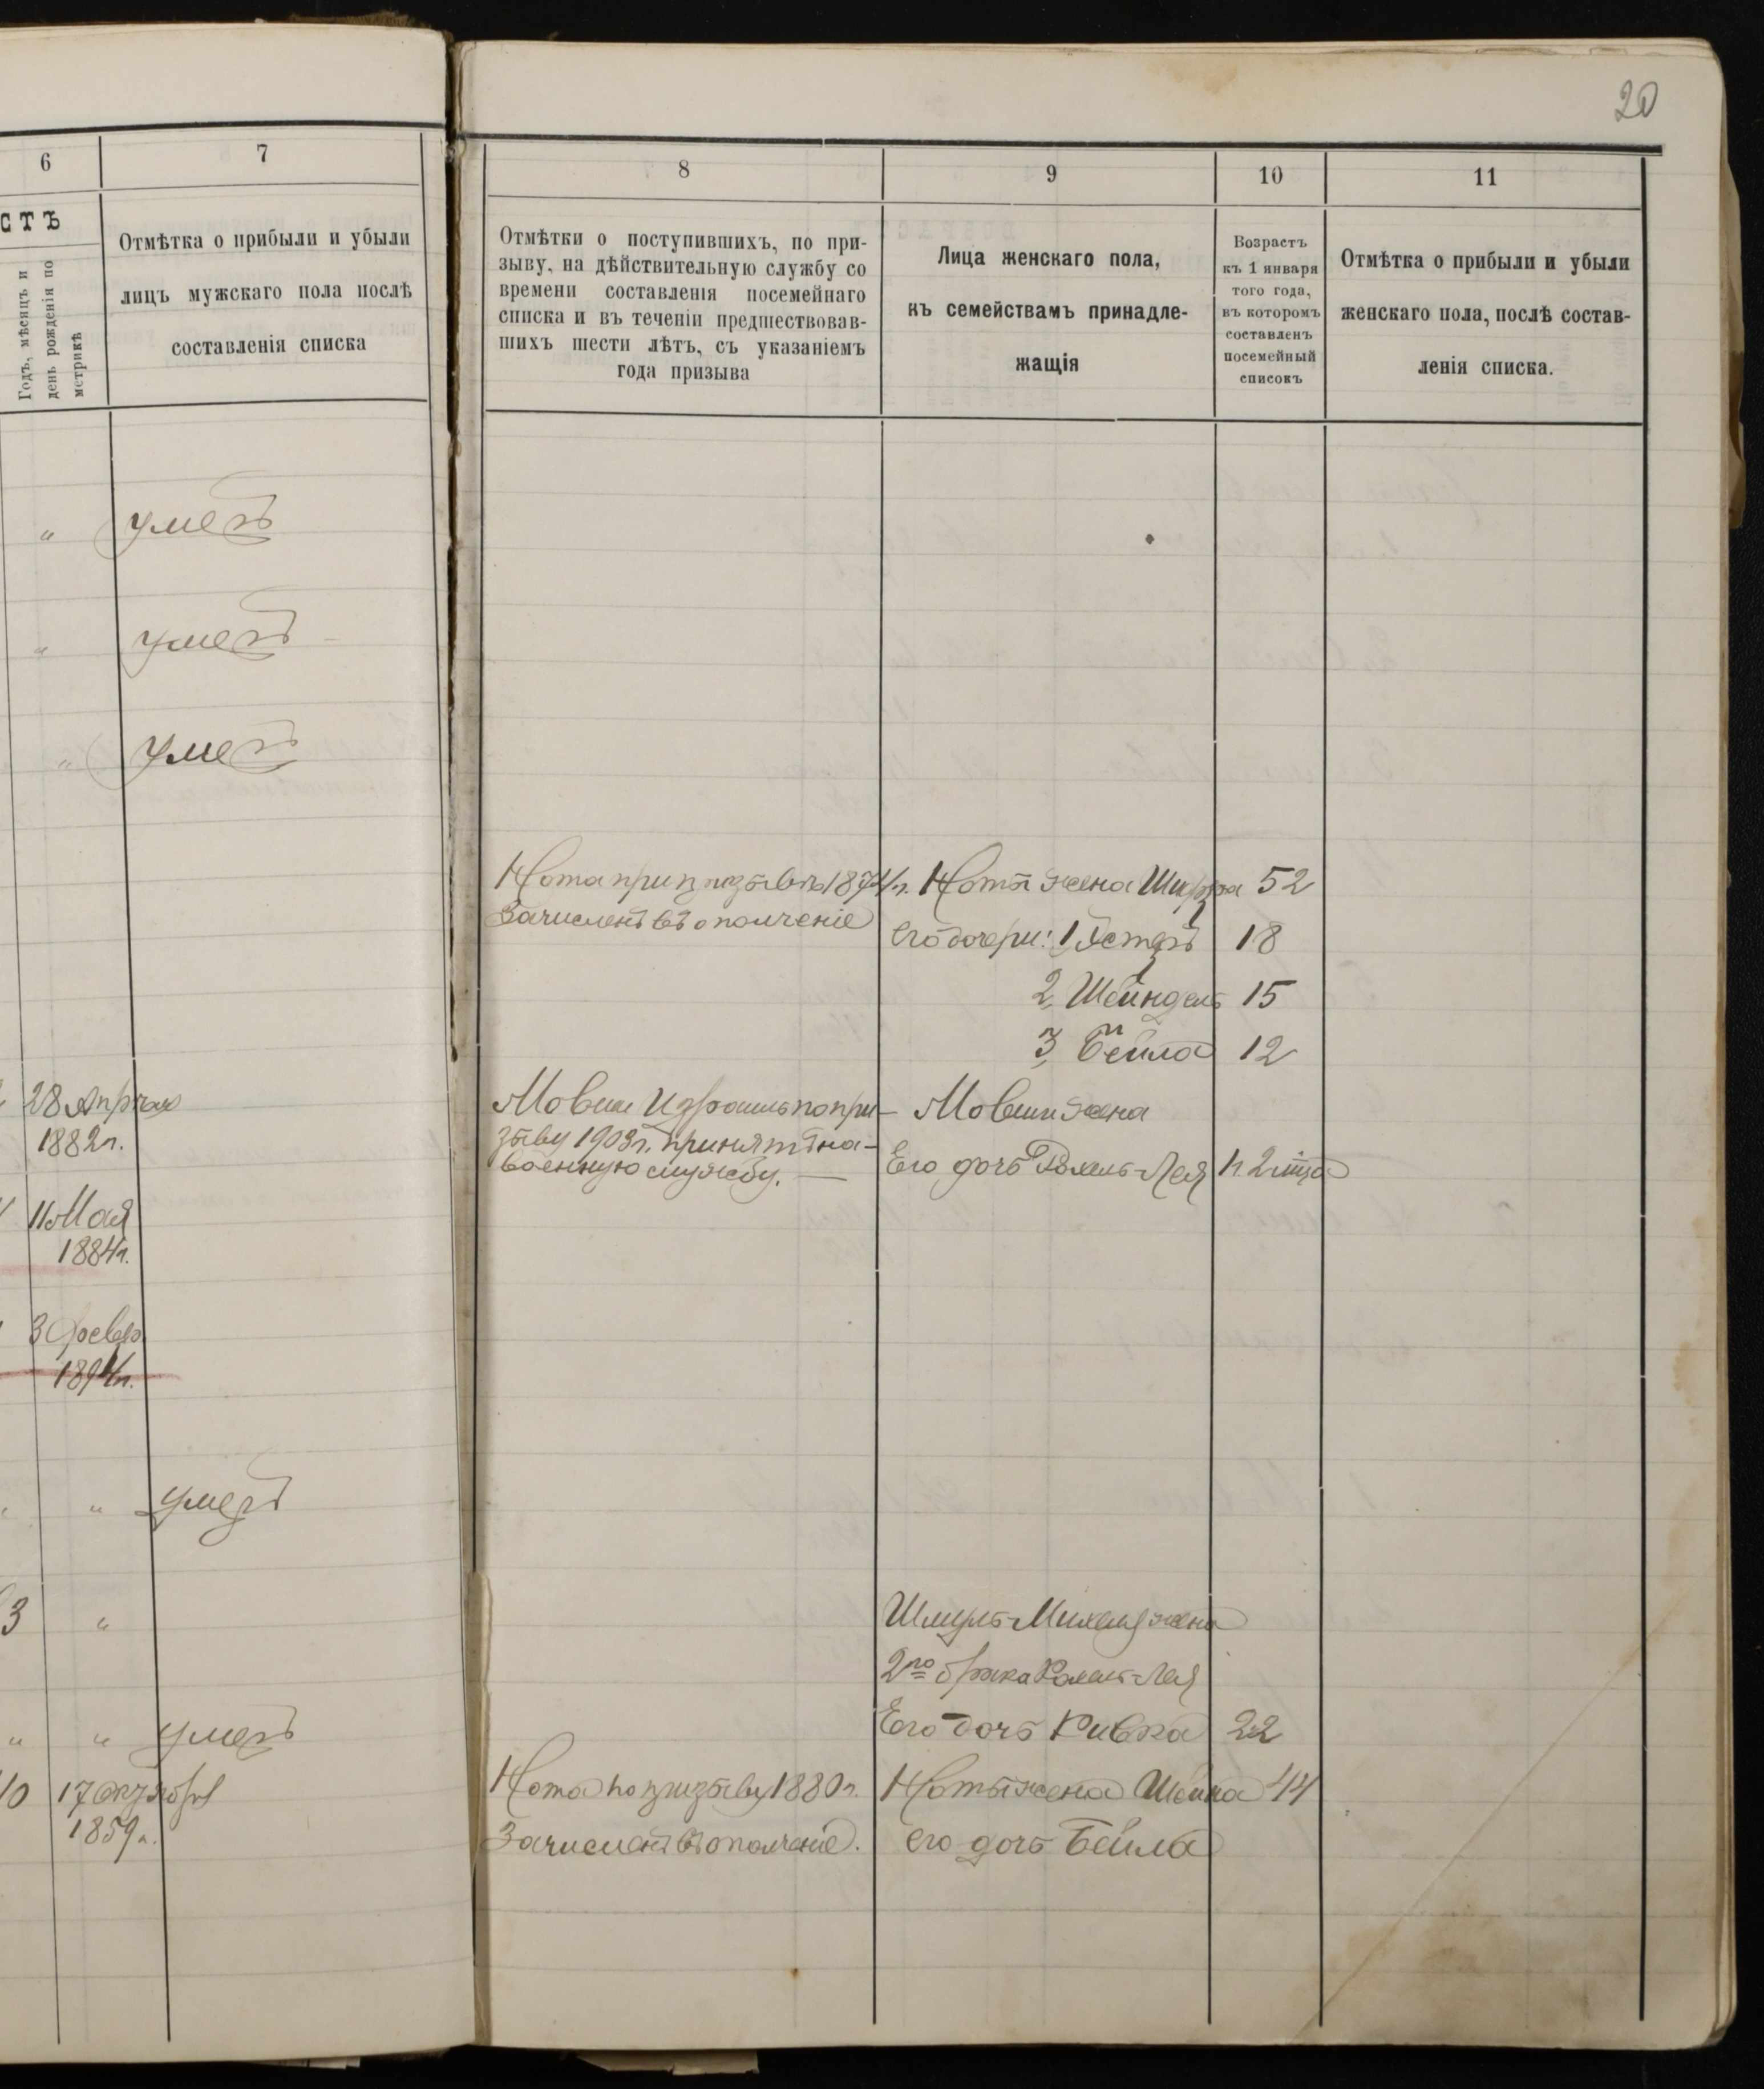 20
6
7
СТЪ
Годъ, мѣсяцъ и
день рожденія по
метрикѣ
Отмѣтка о прибыли и убыли
лицъ мужскаго пола послѣ
составленія списка
„ умеръ
„ умеръ
„ умеръ
28 Апрѣля
1882 г.
11 Мая
1884 г.
3 Февр.
1894 г.
„ умеръ
3 „
„ „ умеръ
10 17 Октября
1859 г.
8
9
10
11
Отмѣтки о поступившихъ, по при-
зыву, на дѣйствительную службу со
времени составленія посемейнаго
списка и въ теченіи предшествовав-
шихъ шести лѣтъ, съ указаніемъ
года призыва
Лица женскаго пола,
къ семействамъ принадле-
жащія
Возрастъ
къ 1 января
того года,
въ которомъ
составленъ
посемейный
списокъ
Отмѣтка о прибыли и убыли
женскаго пола, послѣ состав-
ленія списка.
Нота при призывѣ 1874 г.
Зачисленъ въ ополченіе
Ноты жена Шифра 52
его дочери: 1, Эстеръ 18
2, Шейндель 15
3, Бейла 12
Мовша Израиль по при-
зыву 1903 г. принятъ на-
военную службу. —
Мовши жена
Его дочь Рохель-Лея
Шмуль-Михеля жена
2го брака Рохель-Лея
Его дочь Ривка 22
Нота по призыву 1880 г.
Зачисленъ въ ополченіе.
Ноты жена Шейна 44
его дочь Бейла